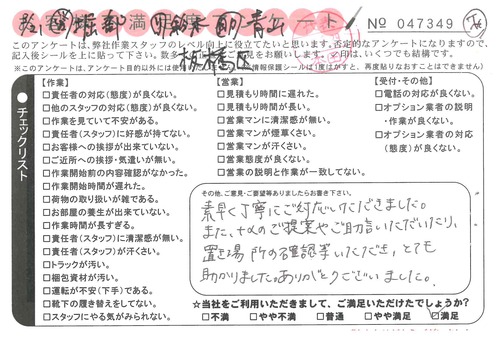 満
ート
№ 047349
このアンケートは、弊社作業スタッフのレベル向上に役立てたいと思います。否定的なアンケートになりますので、
記入後シールを上に貼って下さい。数多く
見をお願いします。
印は、いくつでも結構です。
板橋区
【作業】
□責任者の対応(態度)が良くない。
□他のスタッフの対応(態度)が良くない。
□作業を見ていて不安がある。
□責任者(スタッフ)に好感が持てない。
□お客様への挨拶が出来ていない。
□ご近所への挨拶・気遣いが無い。
□作業開始前の内容確認がなかった。
□作業開始時間が遅れた。
□荷物の取り扱いが雑である。
□お部屋の養生が出来ていない。
□作業時間が長すぎる。
□責任者(スタッフ)に清潔感が無い。
□責任者(スタッフ)が汗くさい。
□トラックが汚い。
□梱包資材が汚い。
□運転が不安(下手)である。
□靴下の履き替えをしてない。
□スタッフにやる気がみられない。
【営業】
□見積もり時間に遅れた。
□見積もり時間が長い。
□営業マンに清潔感が無い。
□営業マンが煙草くさい。
□営業マンが汗くさい。
□営業態度が良くない。
□営業の説明と作業が一致してない。
【受付・その他】
□電話の対応が良くない。
□オプション業者の説明
・作業が良くない。
□オプション業者の対応
(態度)が良くない。
チェックリスト
その他、ご意見・ご要望等ありましたらお書き下さい。
素早く丁寧にご対応いただきました。
また、
のご提案やご助言いただいたり、
置き場所の確認等いただき、とても
助かりました。ありがとうございました。
☆当社をご利用いただきまして、ご満足いただけたでしょうか？
□不満 □やや不満 □普通 □やや満足 □満足